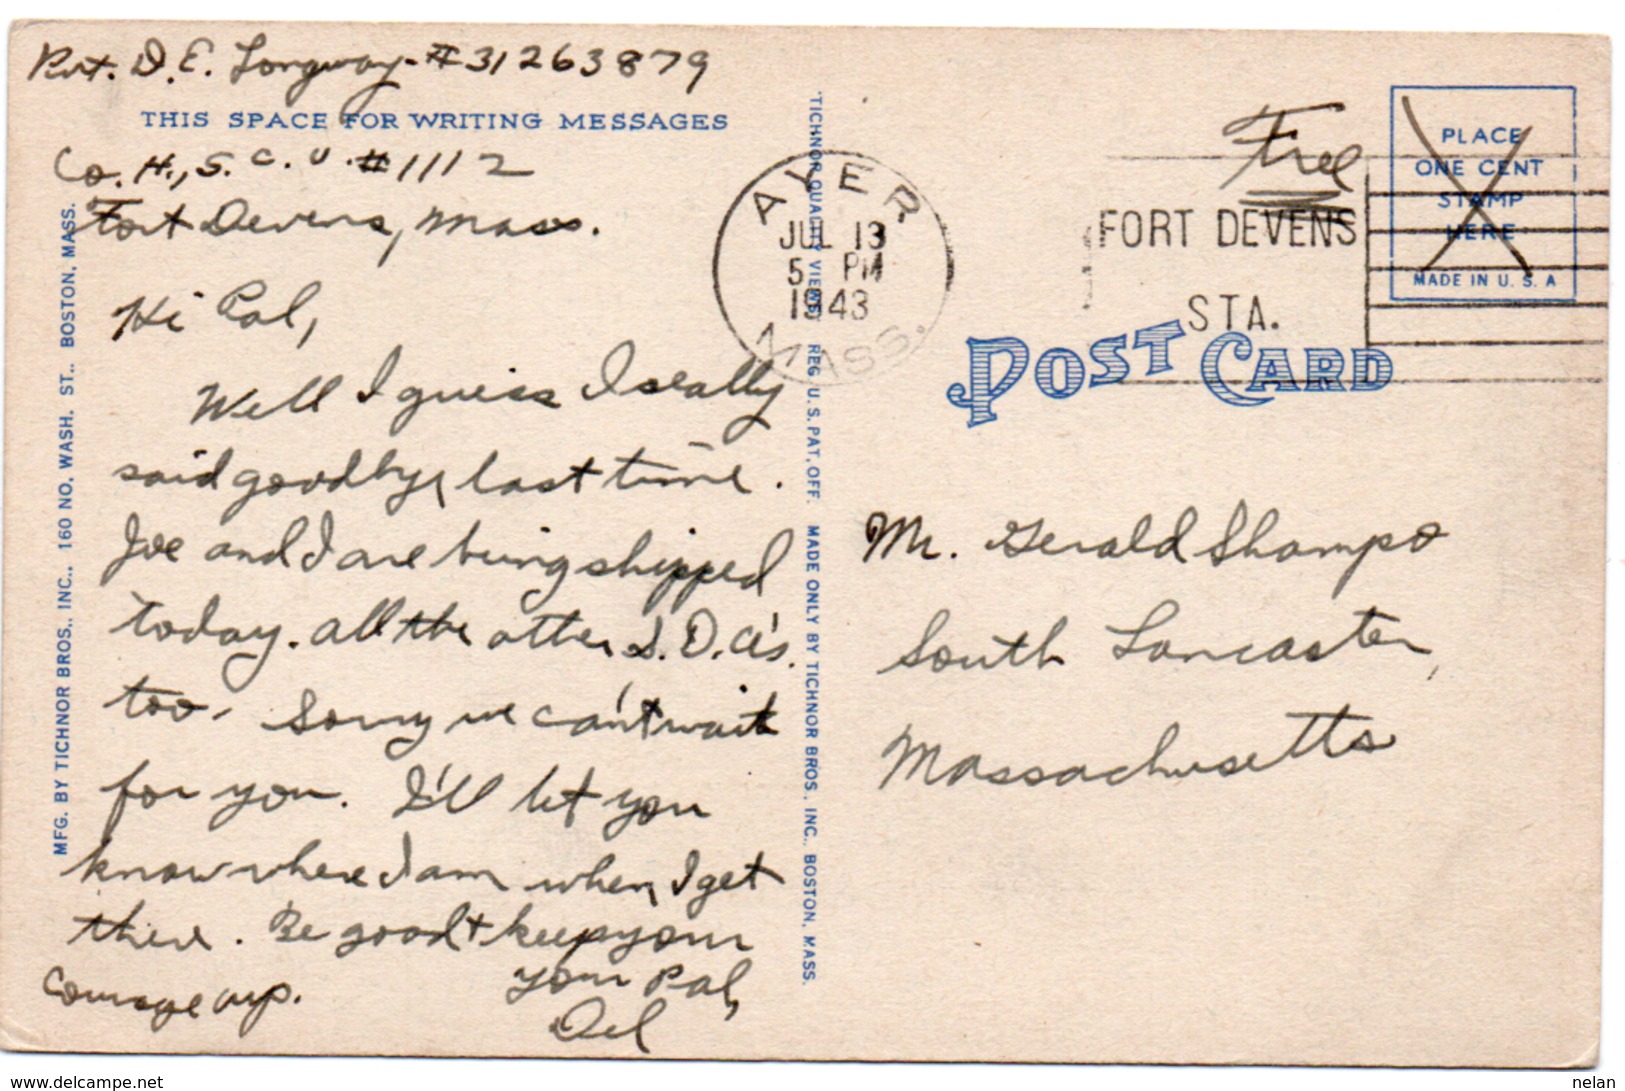 Pvt. D. E. Longway - #31263879
THIS SPACE FOR WRITING MESSAGES
Co. H., S. C. U. #1112
Fort Devens, Mass.
Hi Pal,
Well I guess I really
said goodbye last time.
Joe and I are being shipped
today. all the other S. D. A's.
too. Sorry we can't wait
for you. I'll let you
know where I am when I get
there. Be good + keep your
courage up.
Your Pal,
Del
MFG. BY TICHNOR BROS., INC., 160 NO. WASH. ST., BOSTON, MASS.
TICHNOR QUALITY VIEWS REG. U. S. PAT. OFF. MADE ONLY BY TICHNOR BROS., INC., BOSTON, MASS.
AYER
JUL 13
5 PM
1943
MASS.
Free
FORT DEVENS
STA.
PLACE
ONE CENT
STAMP
HERE
MADE IN U. S. A
POST CARD
Mr. Gerald Shampo
South Lancaster,
Massachusetts
www.delcampe.net
nelan